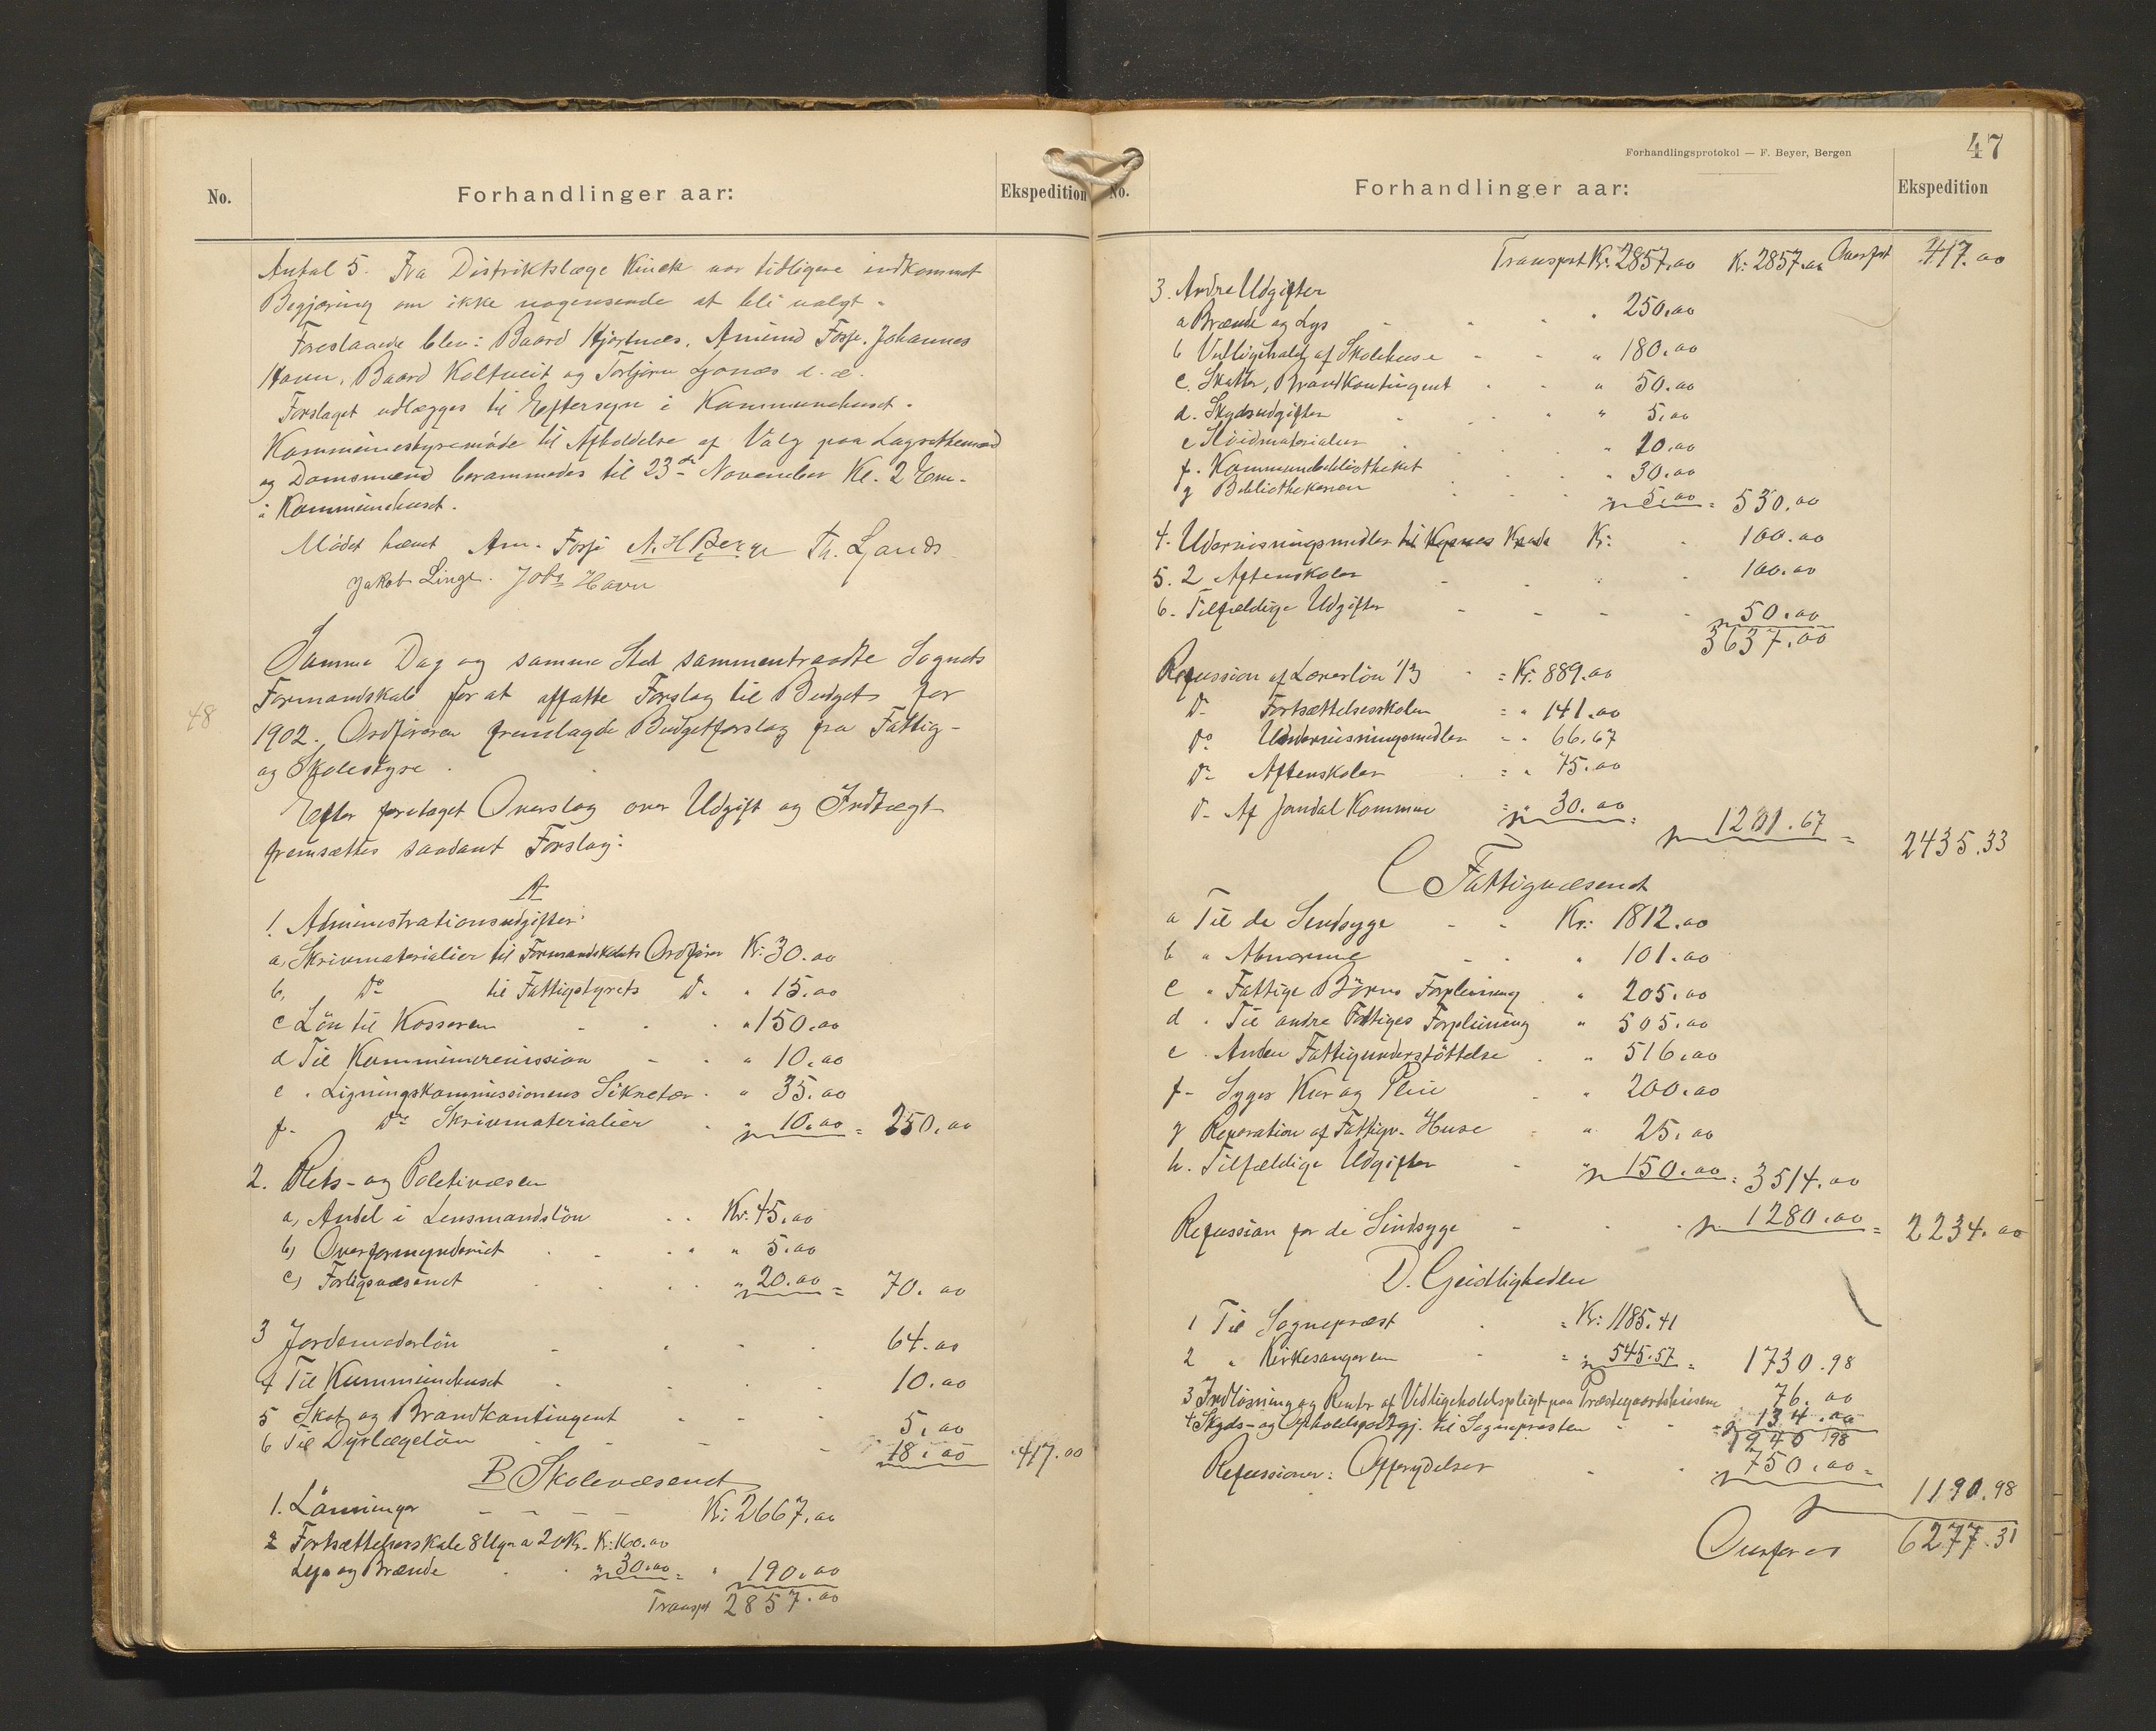 No.
Forhandlinger aar:
Ekspedition
Antal 5. Fra Distriktslæge Kinck var tidligere indkommet
Begjæring om ikke nogensinde at bli valgt.
Foreslaaede blev: Baard Hjortnæs, Amund Fosse, Johannes
Havn, Baard Koltveit og Torbjørn Ljonæs d. æ.
Forslaget udlægges til Eftersyn i Kommunehuset.
Kommunestyremøde til Afholdelse af Valg paa Lagrettemænd
og Domsmænd berammedes til 23de November Kl. 2 Em.
i Kommunehuset.
Mødet hævet Am. Fosse A. H Berge Th. Ljonæs
Jakob Linge. Johs Havn
48
Samme Dag og samme Sted sammentraadte Sognets
Formandskab for at affatte Forslag til Budget for
1902. Ordføreren fremlagde Budgetforslag fra Fattig-
og Skolestyre.
Efter foretaget Overslag over Udgift og Indtægt
fremsættes saadant Forslag:
A
1. Administrationsudgifter:
a, Skrivmaterialier til Formandskabets Ordfører Kr: 30.00
b, Do til Fattigstyrets Do " 15.00
c Løn til Kasseren " 150.00
d Til Kommunerevission " 10.00
e " Ligningskommissionens Sekretær " 35.00
f- Do Skrivmaterialier " 10.00 = 250.00
2. Rets- og Politivæsen
a, Andel i Lensmandsløn Kr: 45.00
b) Overformynderiet " 5.00
c) Forligsvæsenet " 20.00 = 70.00
3 Jordemoderløn 64.00
4 Til Kommunehuset 10.00
5 Skat og Brandkontingent 5.00
6 Til Dyrlægeløn 18.00 417.00
B Skolevæsenet
1. Lønninger Kr: 2667.00
2 Fortsættelsesskole 8 Uger a 20 Kr. Kr: 160.00
Lys og Brænde " 30.00 = " 190.00
Transpt 2857.00
47
Forhandlingsprotokol — F. Beyer, Bergen
No.
Forhandlinger aar:
Ekspedition
Transport Kr: 2857.00 Kr: 2857.00 Overført 417.00
3. Andre Udgifter
a Brænde og Lys " 250.00
b Vedligehold af Skolehuse " 180.00
c. Skatter, Brandkontingent " 50.00
d. Skydsudgifter " 5.00
e Sløidmaterialier " 10.00
f. Kommunebibliotheket " 30.00
g Bibliothekaren " 5.00 = 530.00
4. Udervisningsmidler Kr: 100.00
5. 2 Aftenskoler 100.00
6. Tilfældige Udgifter 50.00
3637.00
Refussion af Lærerløn 1/3 = Kr: 889.00
Do Fortsættelsesskolen = " 141.00
Do Undervisningsmidler " 66.67
Do Aftenskoler = " 75.00
Do Af Jondal Kommune = " 30.00 =
1201.67 = 2435.33
C Fattigvæsenet
a Til de Sindsyge Kr: 1812.00
b " Abnorme " 101.00
c " Fattige Børns Forpleining " 205.00
d " Til andre Fattiges Forpleining " 505.00
e Anden Fattigunderstøttelse " 516.00
f- Syges Kur og Pleie " 200.00
g Reparation af Fattigv. Huse " 25.00
h. Tilfældige Udgifter " 150.00 = 3514.00
Refussion for de Sindsyge 1280.00 = 2234.00
D. Geistligheden
1 Til Sognepræst = Kr: 1185.41
2 " Kirkesangeren = " 545.57 = 1730.98
3 Indløsning og Renter af Vedligeholdspligt paa Præstegaardshusene 76.00
4 Skyds- og Opholdsgodtgj. til Sognepræsten 134.00
1940 98
Refussioner: Offerydelser 750.00 =
1190.98
Overføres 6277.31